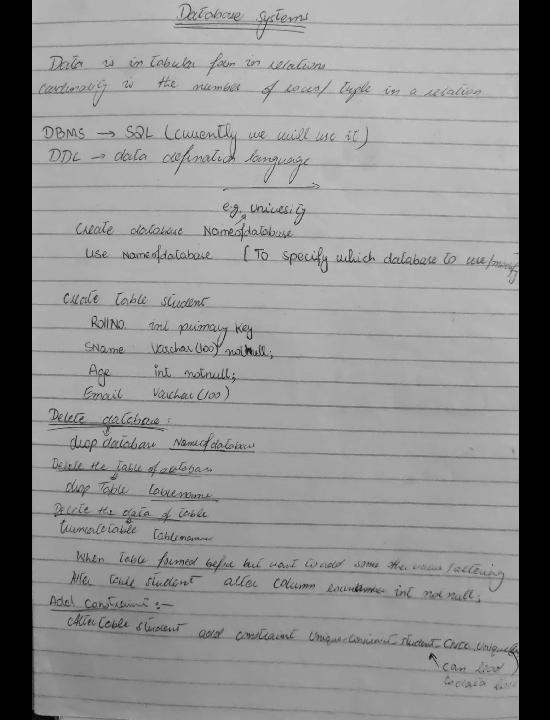 Database systems
Data is in tabular form in relations
cardinality is the number of rows/ tuple in a relation
DBMS → SQL (currently we will use it)
DDL → data defination language
e.g. univesity
Create database Nameofdatabase
Use Nameofdatabase [To specify which database to use/modify
Create table student
RollNo. int primary key
SName Varchar(100) notnull;
Age int notnull;
Email Varchar(100)
Delete database:
drop database Nameofdatabase
Delete the table of database
drop Table tablename
Delete the data of table
trumcatetable Tablename
When table formed before but want to add some other /altering
Alter table student alter column int not null;
Add constraint:-
Alter table student add constraint Unique-Constraint-student- Unique
can lead
to data